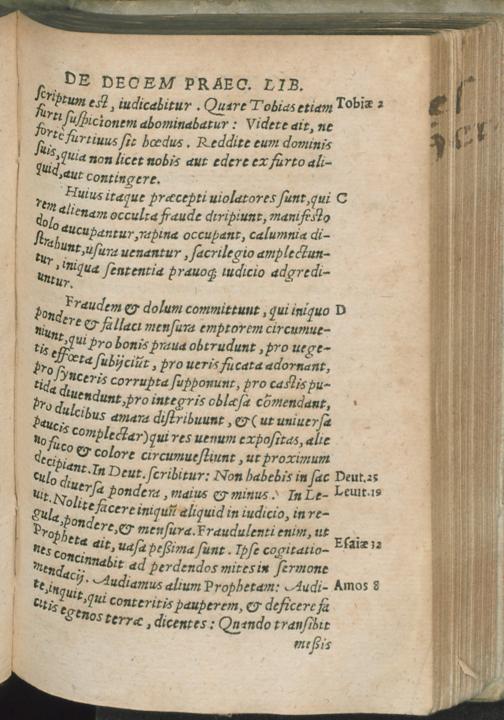 DE DECEM PRAEC. LIB.
scriptum est, iudicabitur. Quare Tobias etiam Tobiæ 2
furti suspicionem abominabatur: Videte ait, ne
fortè furtiuus sit hœdus. Reddite eum dominis
suis, quia non licet nobis aut edere ex furto ali-
quid, aut contingere.
Huius itaque præcepti uiolatores sunt, qui C
rem alienam occulta fraude diripiunt, manifesto
dolo aucupantur, rapina occupant, calumnia di-
strahunt, usura uenantur, sacrilegio amplectun-
tur, iniqua sententia prauoq́; iudicio adgredi-
untur.
Fraudem & dolum committunt, qui iniquo D
pondere & fallaci mensura emptorem circumue-
niunt, qui pro bonis praua obtrudunt, pro uege-
tis effœta subijciũt, pro ueris fucata adornant,
pro synceris corrupta supponunt, pro castis pu-
tida diuendunt, pro integris oblæsa cõmendant,
pro dulcibus amara distribuunt, & (ut uniuersa
paucis complectar) qui res uenum expositas, alie
no fuco & colore circumuestiunt, ut proximum
decipiant. In Deut. scribitur: Non habebis in sac Deut. 25
culo diuersa pondera, maius & minus. In Le- Leuit. 19
uit. Nolite facere iniquũ aliquid in iudicio, in re-
gula, pondere, & mensura. Fraudulenti enim, ut
Propheta ait, uasa peßima sunt. Ipse cogitatio- Esaiæ 32
nes concinnabit ad perdendos mites in sermone
mendacij. Audiamus alium Prophetam: Audi- Amos 8
te, inquit, qui conteritis pauperem, & deficere fa
citis egenos terræ, dicentes: Quando transibit
meßis